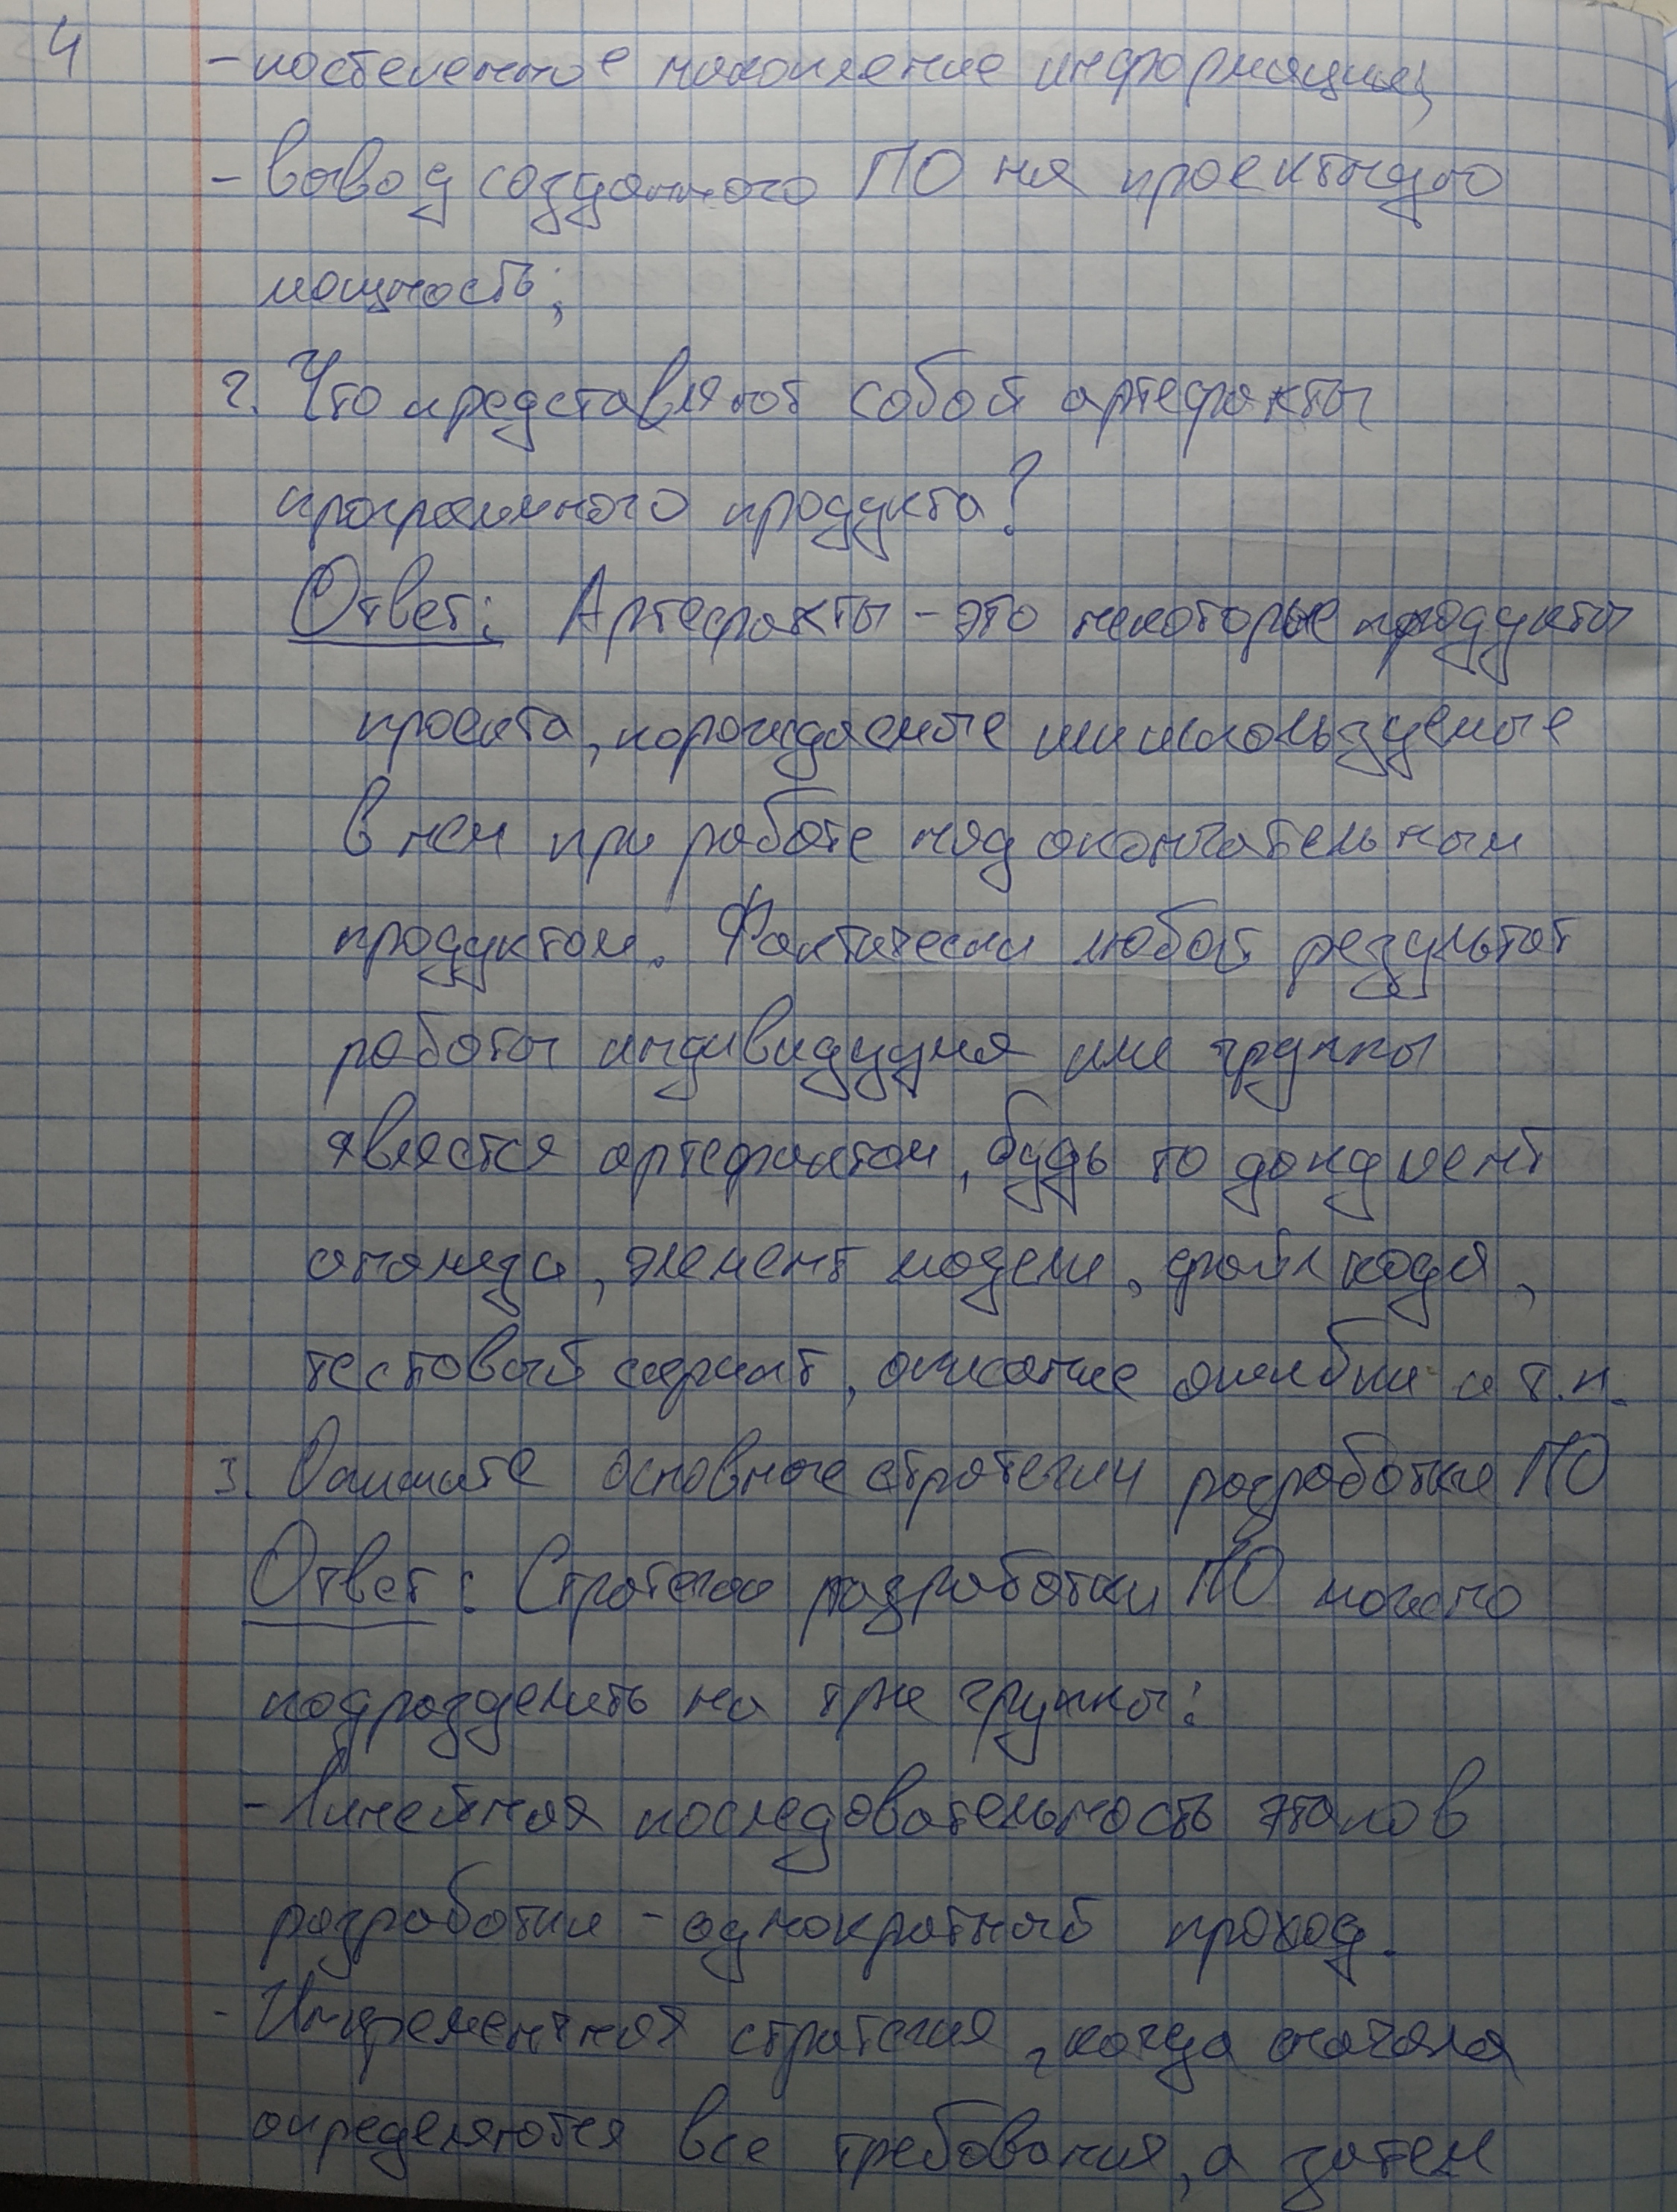 4
- постепенное накопление информации;
- вывод созданного ПО на проектную
мощность;
2. Что представляют собой артефакты
программного продукта?
Ответ: Артефакты - это некоторые продукты
проекта, порождаемые или используемые
в нем при работе над окончательным
продуктом. Фактически любой результат
работы индивидуума или группы
является артефактом, будь то документ
анализа, элемент модели, файл кода,
тестовый скрипт, описание ошибки и т.п.
3. Опишите основные стратегии разработки ПО
Ответ: Стратегии разработки ПО можно
подразделить на три группы:
- Линейная последовательность этапов
разработки - однократный проход.
- Инкрементная стратегия, когда сначала
определяются все требования, а затем